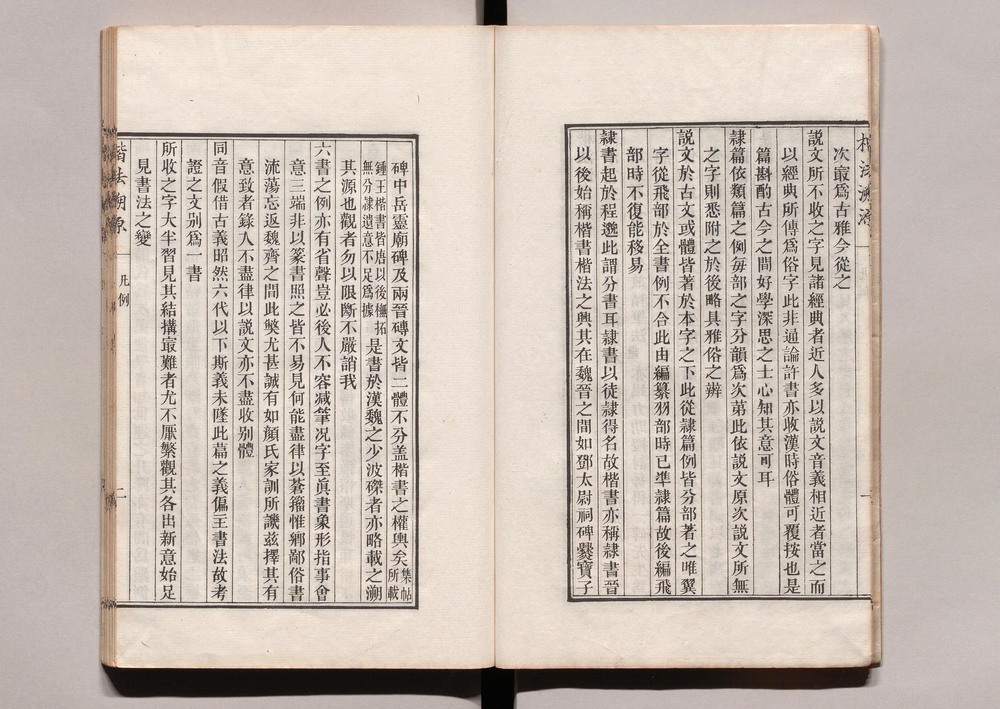 次最爲古雅今從之
說文所不收之字見諸經典者近人多以說文音義相近者當之而
以經典所傳爲俗字此非通論許書亦收漢時俗體可覆按也是
篇斟酌古今之間好學深思之士心知其意可耳
隸篇依類篇之例每部之字分韻爲次第此依說文原次說文所無
之字則悉附之於後略具雅俗之辨
說文於古文或體皆著於本字之下此從隸篇例皆分部著之唯翼
字從飛部於全書例不合此由編纂羽部時已準隸篇故後編飛
部時不復能移易
隸書起於程邈此謂分書耳隸書以徒隸得名故楷書亦稱隸書晉
以後始稱楷書楷法之興其在魏晉之間如鄧太尉祠碑爨寶子
碑中岳靈廟碑及兩晉磚文皆二體不分盖楷書之權輿矣集帖所載
鍾王楷書皆唐以後橅拓無分隸遺意不足爲據是書於漢魏之少波磔者亦略載之溯
其源也觀者勿以限斷不嚴誚我
六書之例亦有省聲豈必後人不容减筆况字至眞書象形指事會
意三端非以篆書照之皆不易見何能盡律以蒼籀惟鄉鄙俗書
流蕩忘返魏齊之間此獘尤甚誠有如顏氏家訓所譏兹擇其有
意致者錄人不盡律以說文亦不盡收别體
同音假借古義昭然六代以下斯義未墜此篇之義偏王書法故考
證之文别爲一書
所收之字大半習見其結構最難者尤不厭繁觀其各出新意始足
見書法之變
楷法溯源
凡例
二